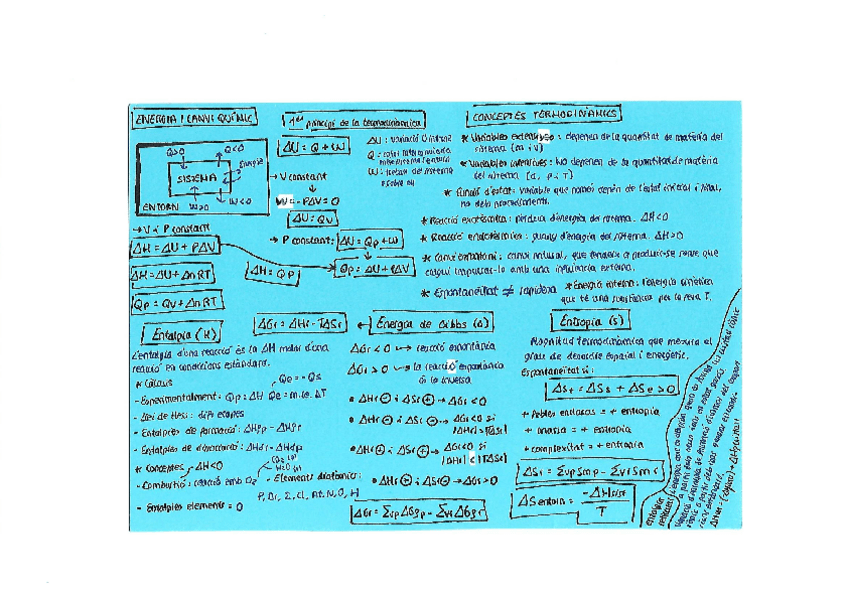 ENERGIA I CANVI QUÍMIC
Q>0
Q<0
Energia
SISTEMA
ENTORN
W>0
W<0
→ V i P constant
ΔH = ΔU + PΔV
ΔH = ΔU + ΔnRT
Qp = Qv + ΔnRT
1er principi de la termodinàmica
ΔU = Q + W
ΔU: variació U interna
Q = calor intercanviada
W: treball del sistema
→ V constant
W = -PΔV = 0
ΔU = Qv
→ P constant: ΔU = Qp + W
ΔH = Qp
Qp = ΔU + PΔV
CONCEPTES TERMODINÀMICS
* Variables extensives: depenen de la quantitat de matèria del
sistema (m i V)
* Variables intensives: NO depenen de la quantitat de matèria
del sistema (d, P i T)
* Funció d'estat: variable que només depèn de l'estat inicial i final,
no dels procediments.
* Reacció exotèrmica: pèrdua d'energia del sistema. ΔH<0
* Reacció endotèrmica: guany d'energia del sistema. ΔH>0
* Canvi espontani: canvi natural, que tendeix a produir-se sense que
calgui impulsar-lo amb una influència externa.
* Espontaneïtat ≠ rapidesa
* Energia interna: l'energia cinètica
que té una substància per la seva T.
Entalpia (H)
L'entalpia d'una reacció és la ΔH molar d'una
reacció en condicions estàndard.
* Càlculs
- Experimentalment: Qp = ΔH
Qe = m·ce·ΔT
- Llei de Hess: diff etapes
- Entalpies de formació: ΔHfp - ΔHfr
- Entalpies de dissociació: ΔHdr - ΔHdp
* Conceptes
ΔH<0
- Combustió: reacció amb O2
CO2 (g)
H2O (l)
- Elements diatòmics:
- Entalpies elements = 0
ΔGr = ΔHr - TΔSr
← Energia de Gibbs (G)
ΔGr < 0 → reacció espontània
ΔGr > 0 → la reacció espontània
és la inversa
• ΔHr ⊖ i ΔSr ⊕ → ΔGr<0
• ΔHr ⊖ i ΔSr ⊖ → ΔGr<0 si
|ΔHr| > |TΔSr|
• ΔHr ⊕ i ΔSr ⊕ → ΔGr<0 si
|ΔHr| < |TΔSr|
• ΔHr ⊕ i ΔSr ⊖ → ΔGr>0
ΔGr = Σνp ΔGfp - Σνr ΔGfr
Entropia (S)
Magnitud termodinàmica que mesura el
grau de desordre espacial i energètic.
Espontaneïtat si:
ΔSt = ΔSs + ΔSe > 0
+ febles enllaços = + entropia
+ massa = + entropia
+ complexitat = + entropia
ΔSr = ΣνpSmp - ΣνrSmr
ΔS entorn = -ΔHsist / T